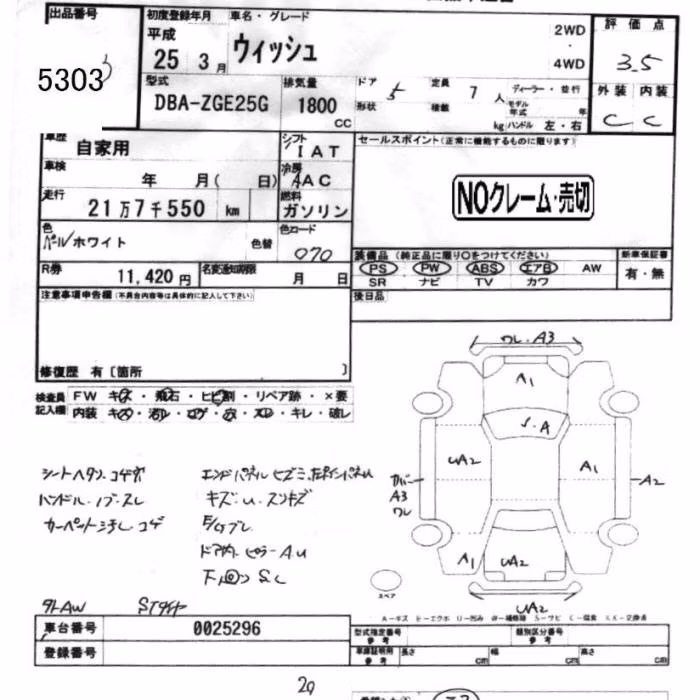 出品番号
5303
初度登録年月
平成
25 3月
車名・グレード
ウィッシュ
2WD
・
4WD
評価点
3.5
外装 内装
C C
型式
DBA-ZGE25G
排気量
1800
CC
ドア 5
定員 7人
ディーラー・並行
形状
積載 kg
モデル年式 年
ハンドル 左・右
車歴
自家用
シフト
IAT
車検
年 月( 日)
冷房
AAC
走行
21万7千550 km
燃料
ガソリン
色
パールホワイト
色替
色コード
070
R券
11,420円
名変通知期限
月 日
セールスポイント(正常に機能するものに限ります)
NOクレーム・売切
装備品(純正品に限り○をつけてください)
PS PW ABS エアB AW
SR ナビ TV カワ
新車保証書
有・無
後日品
注意事項申告欄(不具合内容等は具体的に記入して下さい)
修復歴 有〔箇所 〕
検査員
記入欄
FW キズ・飛石・ヒビ割・リペア跡・×要
内装 キズ・汚レ・コゲ・穴・スレ・キレ・破レ
ワレ・A3
A1
UA2
A1
A2
A3
ワレ
A1
UA2
UA2
スペア
シートヘタリ コゲ穴
ハンドル・ノブ・スレ
カーペット汚レ コゲ
キズ・U・スリキズ
下回り S.C
A−キズ E−エクボ
車台番号
0025296
登録番号
型式指定番号
参考
類別区分番号
参考
車庫証明用
参考
長さ cm
幅 cm
高さ cm
29